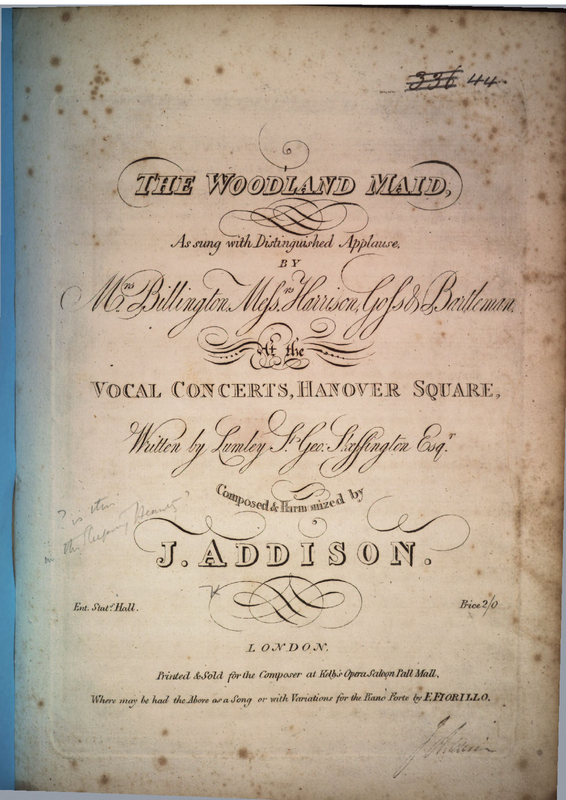 336 44.
THE WOODLAND MAID,
As sung with Distinguished Applause,
BY
Mrs. Billington, Messrs. Harrison, Goss & Bartleman.
At the
VOCAL CONCERTS, HANOVER SQUARE,
Written by Lumley St. Geo: Skeffington Esqr.
Composed & Harmonized by
J. ADDISON.
? is this
in the Sleeping Beauty?
Ent. Stat. Hall.
Price 2/0
LONDON,
Printed & Sold for the Composer at Kelly's Opera Saloon Pall Mall,
Where may be had the Above as a Song or with Variations for the Piano Forte by F. FIORILLO.